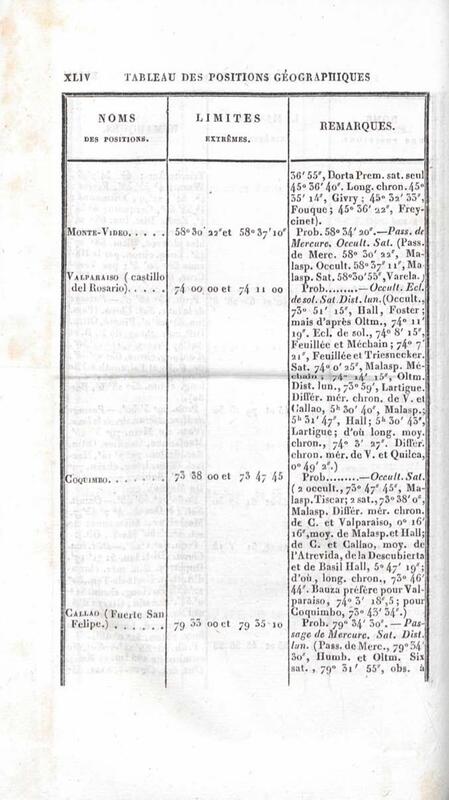 XLIV TABLEAU DES POSITIONS GÉOGRAPHIQUES
NOMS
DES POSITIONS.
LIMITES
EXTRÊMES.
REMARQUES.
36' 55", Dorta Prem. sat. seul
45° 36' 40". Long. chron. 45°
35' 14", Givry; 45° 32' 33",
Fouque; 45° 36' 22", Frey-
cinet).
MONTE-VIDEO. . . . . 58° 30' 22" et 58° 37' 10" Prob. 58° 34' 20".—Pass. de
Mercure. Occult. Sat. (Pass.
de Merc. 58° 30' 22", Ma-
lasp. Occult. 58° 37' 11", Ma-
lasp. Sat. 58° 30' 55", Varela.)
VALPARAISO (castillo
del Rosario). . . . . 74 00 00 et 74 11 00 Prob.........—Occult. Ecl.
de sol. Sat. Dist. lun. (Occult.,
73° 51' 15", Hall, Foster;
mais d'après Oltm., 74° 11'
19". Ecl. de sol., 74° 8' 15",
Feuillée et Méchain; 74° 7'
21", Feuillée et Triesnecker.
Sat. 74° 0' 25", Malasp. Mé-
chain, 74° 14' 15", Oltm.
Dist. lun., 73° 59', Lartigue.
Différ. mér. chron. de V. et
Callao, 5h 30' 40", Malasp.;
5h 31' 47", Hall; 5h 30' 43",
Lartigue; d'où long. moy.
chron., 74° 3' 27". Différ.
chron. mér. de V. et Quilca,
0° 49' 2".)
COQUIMBO. . . . . . . 73 38 00 et 73 47 45 Prob.........—Occult. Sat.
(2 occult., 73° 47' 45", Ma-
lasp. Tiscar; 2 sat., 73° 38' 0",
Malasp. Différ. mér. chron.
de C. et Valparaiso, 0° 16'
16", moy. de Malasp. et Hall;
de C. et Callao, moy. de
l'Atrevida, de la Descubierta
et de Basil Hall, 5° 47' 19";
d'où, long. chron., 73° 46'
44". Bauza préfère pour Val-
paraiso, 74° 3' 18",5; pour
Coquimbo, 73° 43' 34".)
CALLAO (Fuerte San
Felipe.) . . . . . . 79 33 00 et 79 35 10 Prob. 79° 34' 30".—Pas-
sage de Mercure. Sat. Dist.
lun. (Pass. de Merc., 79° 34'
30", Humb. et Oltm. Six
sat., 79° 31' 55", obs. à